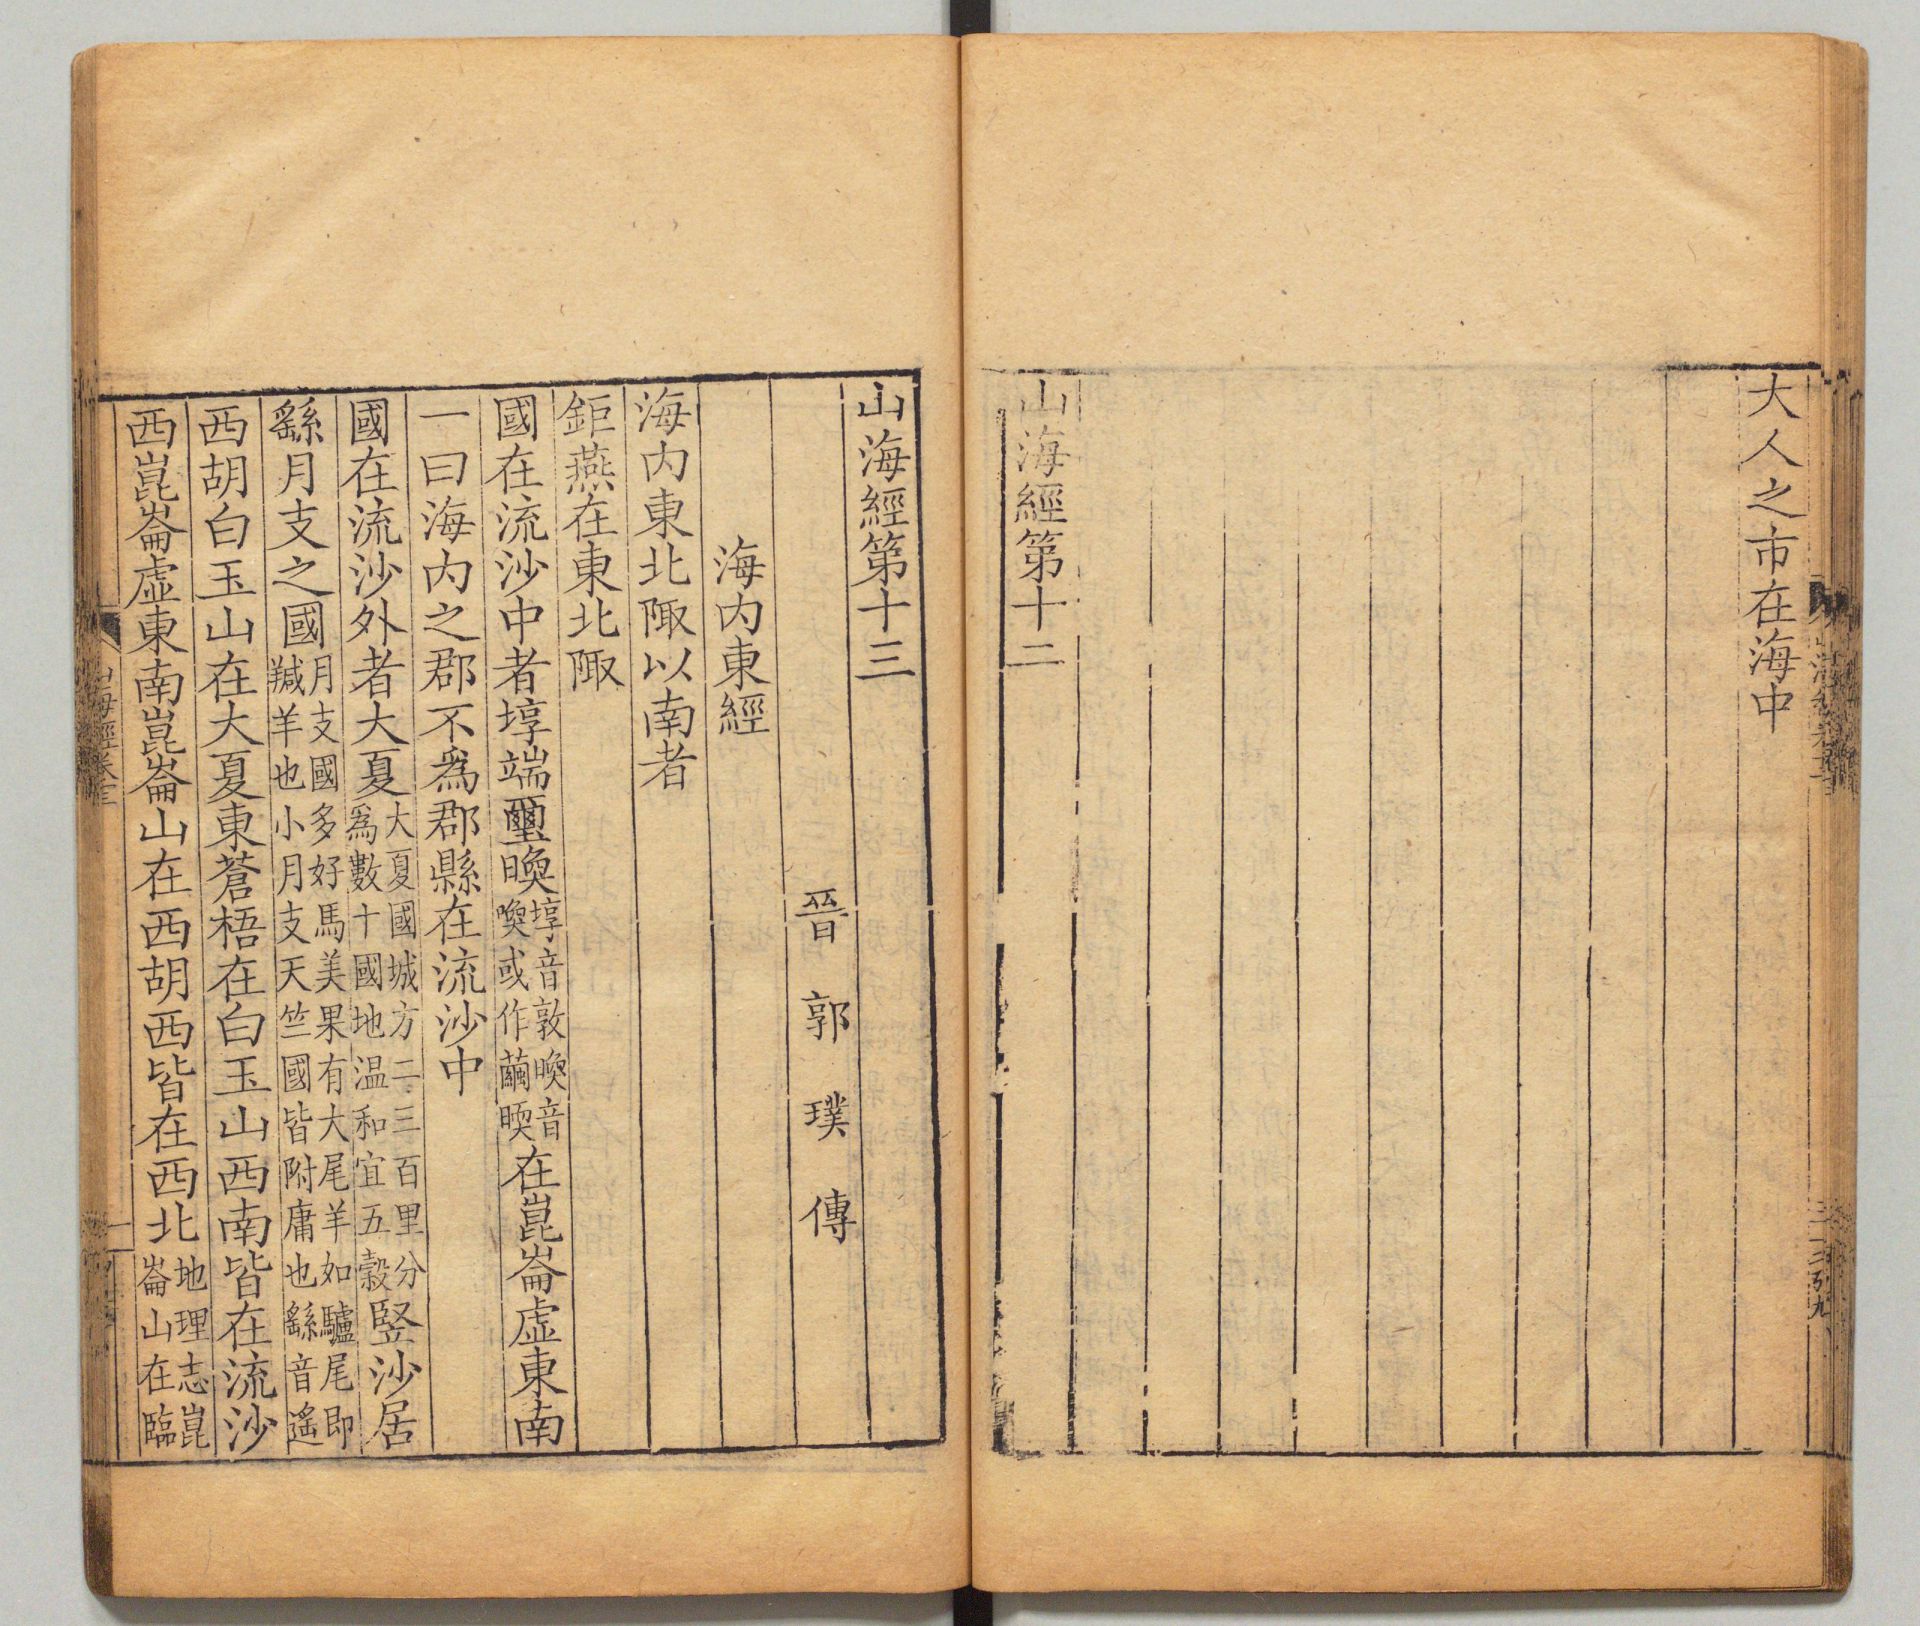 大人之市在海中
山海經第十二
山海經第十三
晉郭璞傳
海内東經
海内東北陬以南者
鉅燕在東北陬
國在流沙中者埻端壐㬇埻音敦㬇音喚或作繭㬉在崑崙虛東南
一曰海内之郡不爲郡縣在流沙中
國在流沙外者大夏大夏國城方二三百里分爲數十國地温和宜五穀豎沙居
繇月支之國月支國多好馬美果有大尾羊如驢尾即羬羊也小月支天竺國皆附庸也繇音遙
西胡白玉山在大夏東蒼梧在白玉山西南皆在流沙
西崑崙虛東南崑崙山在西胡西皆在西北地理志崑崙山在臨
山海經卷十三 一